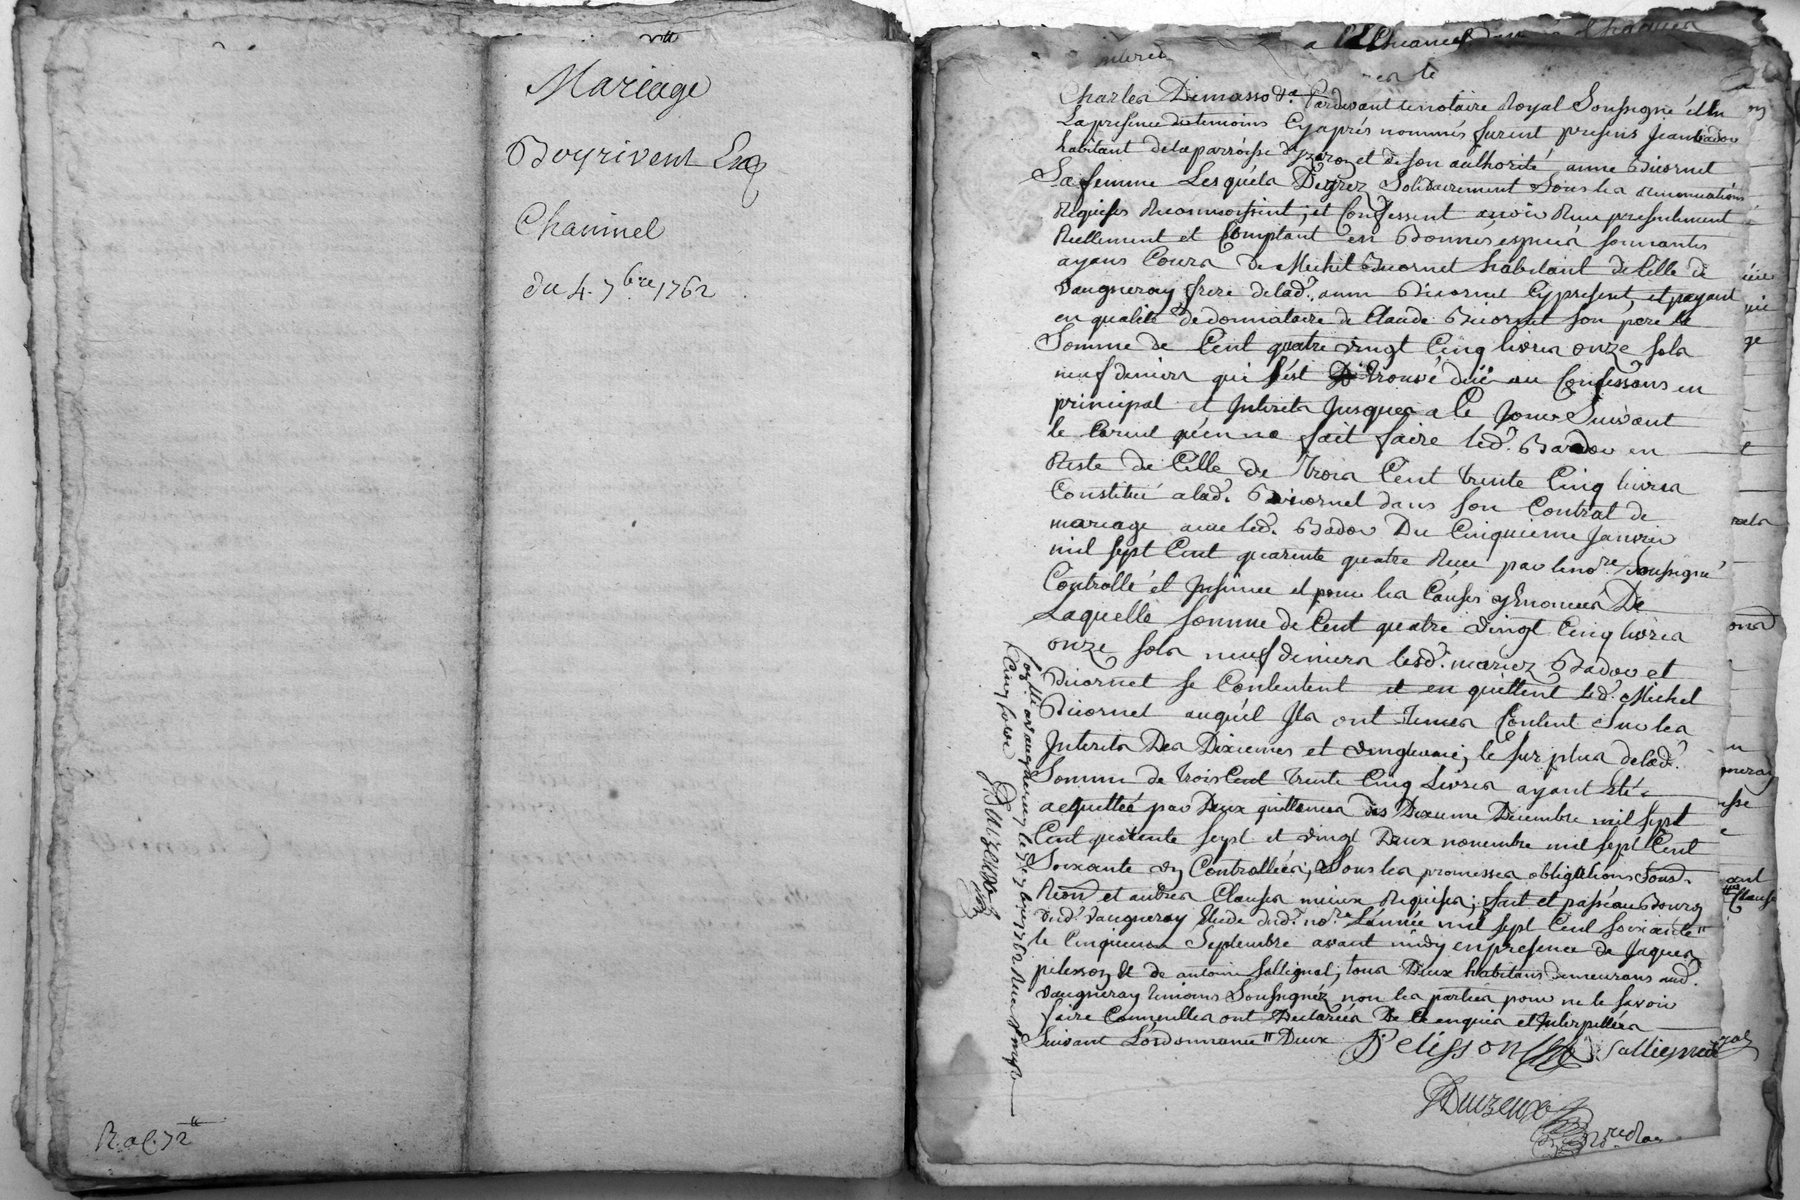 Mariage
Boyrivent Et
Chaninel
du 4. 7bre 1762
R. al. 72
Pardevant le notaire Royal Soussigné et En
La presence des temoins Cyaprés nommés furent presens Jean Badou
habitant delaparroisse d'yzeron et de son authorité anne Bicornet
Sa femme Lesquels Degrez Solidairement Sous les renonciations
Requises Reconnoissent, et Confessent avoir Receu presentement
Reellement et Comptant en Bonnes especes sonnantes
ayans Cours de Michel Bicornet habitant de Celle de
Vaugneray frere delad. anne Bicornet Cy present, et payant
en qualité de donnataire de Claude Bicornet son pere la
Somme de Cent quatre vingt Cinq livres onze sols
neuf deniers qui s'est trouvé düe au Confessans en
principal et Interets Jusques a Ce Jour Suivant
le Calcul qu'en a fait faire led. Badou en
Reste de Celle de Trois Cent trente Cinq livres
Constitué alad. Bicornet dans son Contrat de
mariage avec led. Badou Du Cinquieme Janvier
mil sept Cent quarente quatre Receu par leno.re Soussigné
Controllé et Insinué et pour les Causes y Enoncées De
Laquelle somme de Cent quatre vingt Cinq livres
onze sols neuf deniers lesd. mariez Badou et
Bicornet se Contentent et en quittent led. Michel
Bicornet auquel Ils ont tenus Content Sur les
Interets Des Dixiemes et vingtieme, le surplus delad.
Somme de trois Cent trente Cinq Livres ayant été
acquittée par Deux quittances des Dixieme Decembre mil sept
Cent quarente sept et vingt Deux novembre mil sept Cent
Soixante Controllées, Sous les promesses obligations Sous.
Rion et autres Clauses mieux Requises; fait et passé au Bourg
dud. Vaugneray Etude dud. no.re L'année mil sept Cent soixante "
le Cinquieme Septembre avant midy en presence de Jaques
pelisson et de antoine sallignat, tous Deux habitans demeurans aud.
Vaugneray temoins Soussignéz non les parties pour ne le savoir
faire Comme elles ont Declarées De Ce enquis et Interpellées
Suivant L'ordonnance " Deux
Pelisson
Duizeux
Con.llé a Vaugneray le 7bre 1762 Receu
Cinq sols